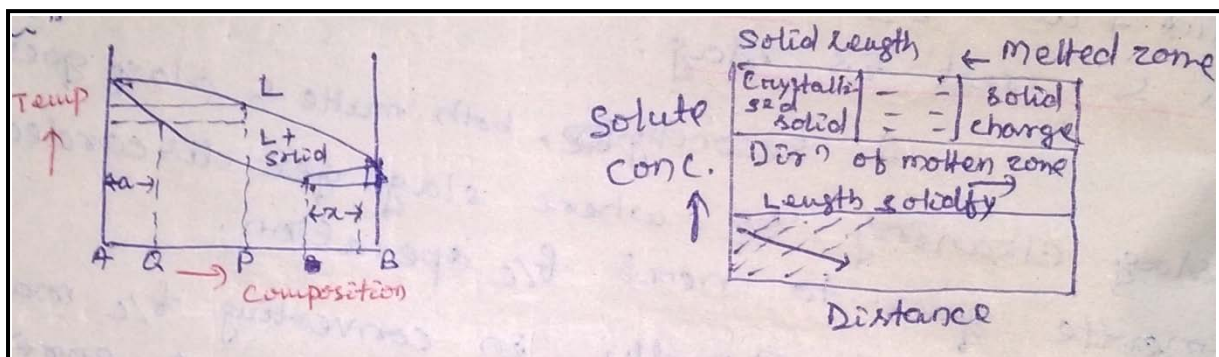 Temp
L
L+
solid
a
x
A Q P B
composition
Solid length ← Melted zone
Solute
conc.
Crystalli-
sed
solid
solid
charge
Dirⁿ of molten zone
Length solidify
Distance